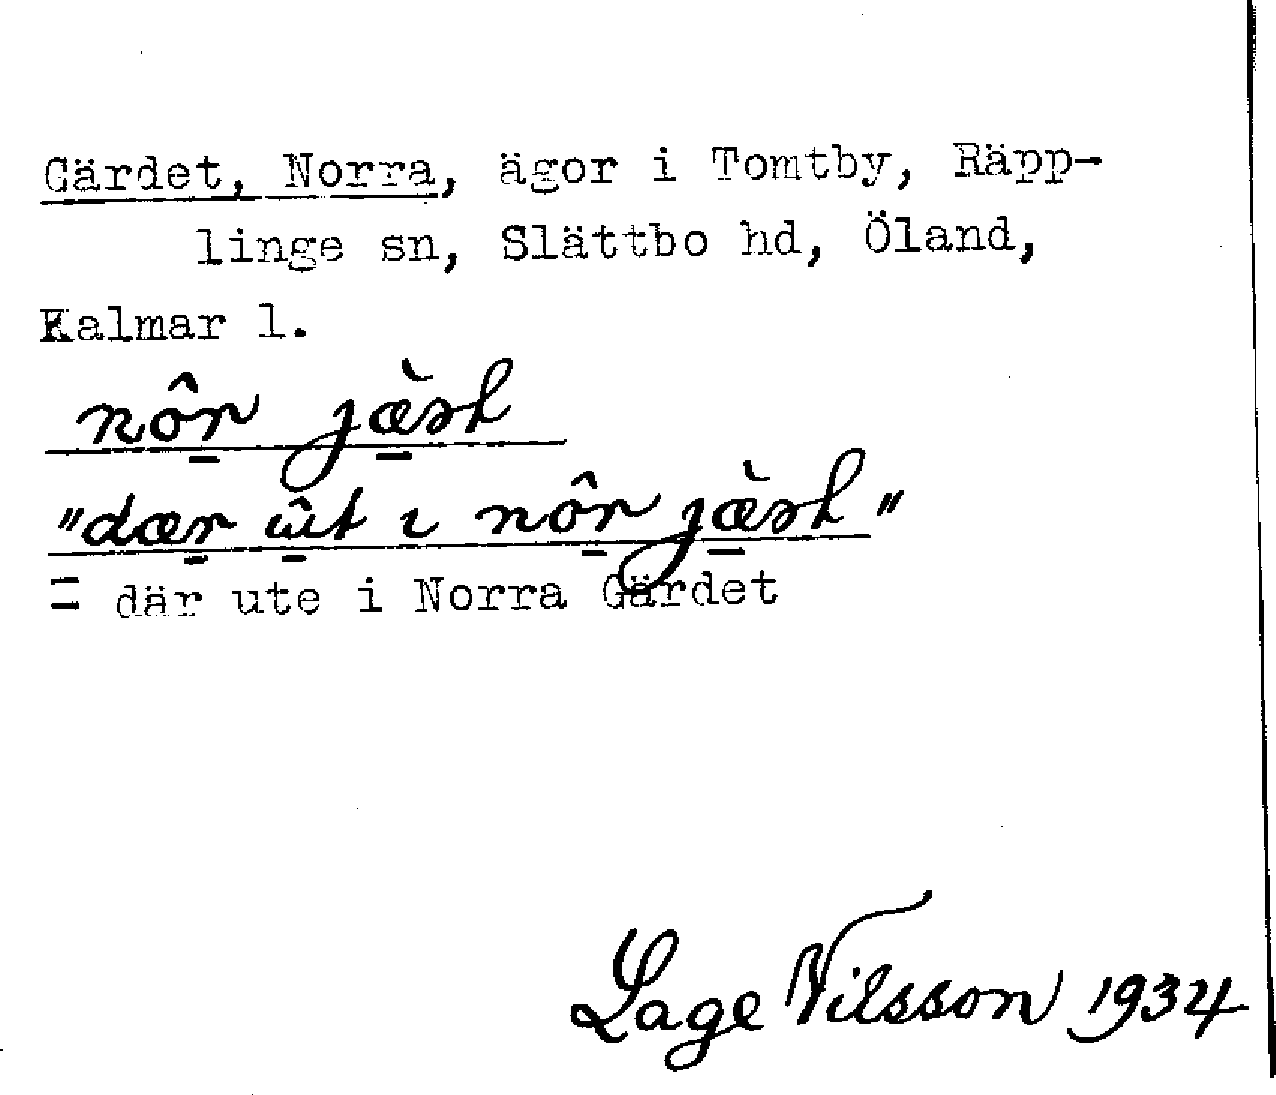 Gärdet, Norra, ägor i Tomtby, Räpp-
linge sn, Slättbo hd, Öland,
Kalmar l.
nôr jæ̀sl
"dær ût ı nôr jæ̀sl"
= där ute i Norra Gärdet
Lage Nilsson 1934